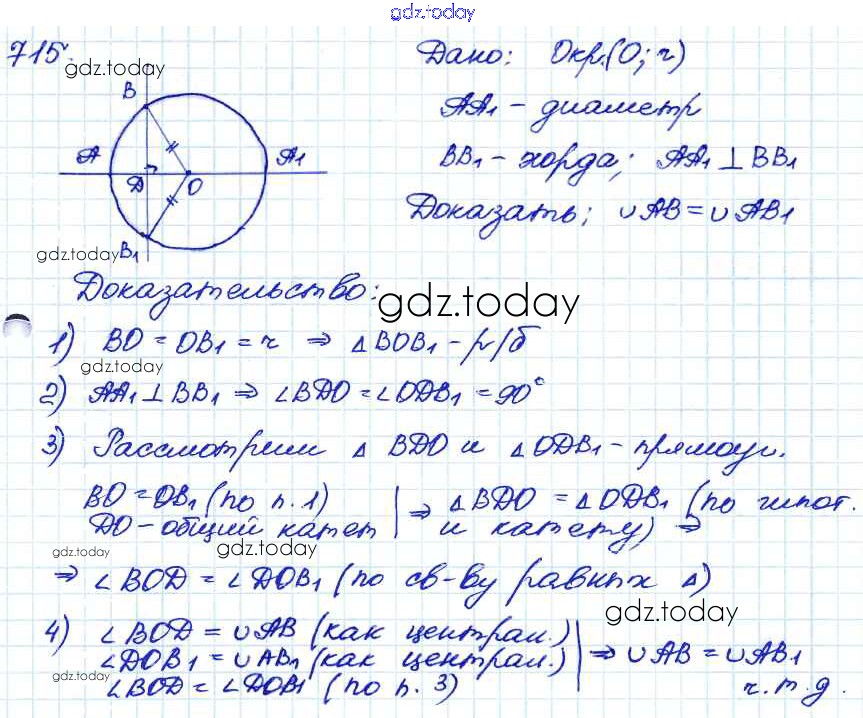 gdz.today
715.
gdz.today
B
A
A1
D
O
gdz.today B1
Дано: Окр.(O; r)
AA1 - диаметр
BB1 - хорда; AA1 ⊥ BB1
Доказать: ∪AB = ∪AB1
Доказательство:
gdz.today
1) BO = OB1 = r ⇒ △BOB1 - р/б
gdz.today
2) AA1 ⊥ BB1 ⇒ ∠BDO = ∠ODB1 = 90°
3) Рассмотрим △ BDO и △ODB1 - прямоуг.
BO = OB1 (по п. 1) | ⇒ △BDO = △ODB1 (по гипот.
DO - общий катет | и катету) ⇒
gdz.today
gdz.today
⇒ ∠BOD = ∠DOB1 (по св-ву равных △)
gdz.today
4) ∠BOD = ∪AB (как централ.)
∠DOB1 = ∪AB1 (как централ.) ⇒ ∪AB = ∪AB1
gdz.today
∠BOD = ∠DOB1 (по п. 3) ч.т.д.